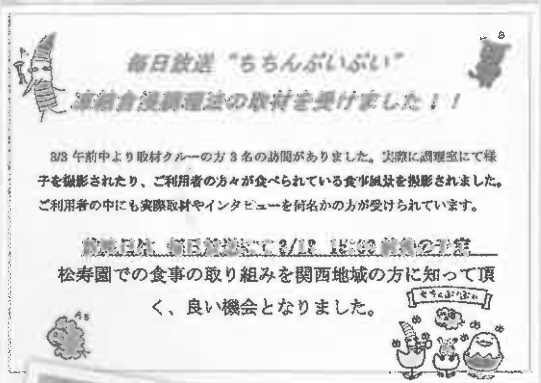 毎日放送 “ちちんぷいぷい”
凍結含浸調理法の取材を受けました！！
3/3 午前中より取材クルーの方 3 名の訪問がありました。実際に調理室にて様
子を撮影されたり、ご利用者の方々が食べられている食事風景を撮影されました。
ご利用者の中にも実際取材やインタビューを何名かの方が受けられています。
毎日放送にて
松寿園での食事の取り組みを関西地域の方に知って頂
く、良い機会となりました。
ちちんぷいぷい